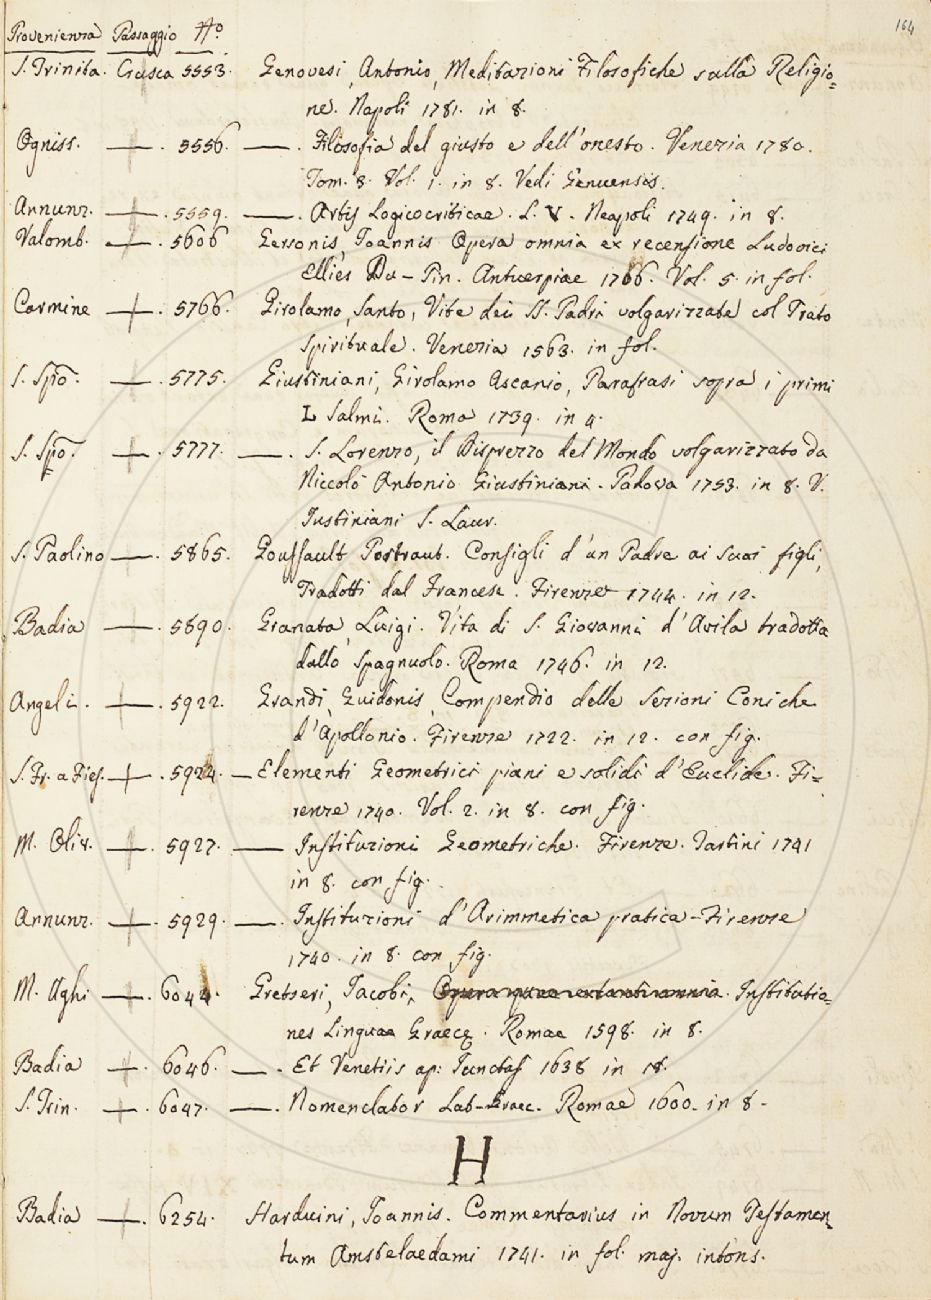 164
Provenienza Passaggio No
S. Trinita. Crusca 5553. Genovesi, Antonio, Meditazioni Filosofiche sulla Religio=
ne. Napoli 1781. in 8.
Ogniss. — . 5556. — . Filosofia del giusto e dell'onesto. Venezia 1780.
Tom. 8. Vol. 1. in 8. Vedi Genuensis.
Annunz. — . 5559. — . Artis Logicocriticae. L. V. Neapoli 1749. in 8.
Valomb. — . 5606 Gersonis, Joannis Opera omnia ex recensione Ludovici
Ellies Du-Pin. Antuerpiae 1706. Vol. 5. in fol.
Carmine — . 5766. Girolamo, Santo, Vite dei SS. Padri volgarizzate col Prato
Spirituale. Venezia 1563. in fol.
S. Spo. — . 5775. Giustiniani, Girolamo Ascanio, Parafrasi sopra i primi
L Salmi. Roma 1739. in 4.
S. Spo. — . 5777. — . S. Lorenzo, il Disprezzo del Mondo volgarizzato da
Niccolò Antonio Giustiniani. Padova 1753. in 8. V.
Justiniani S. Laur.
S. Paolino — . 5865. Goussault Portraut. Consigli d'un Padre ai suoi figli,
Tradotti dal Francese. Firenze 1744. in 12.
Badia — . 5890. Granata, Luigi. Vita di S. Giovanni d'Avila tradotta
dallo Spagnuolo. Roma 1746. in 12.
Angeli. — . 5922. Grandi, Guidonis, Compendio delle Sezioni Coniche
d'Apollonio. Firenze 1722. in 12. con fig.
S. Fr. a Fies. — . 5924. — Elementi Geometrici piani e solidi d'Euclide. Fi=
renze 1740. Vol. 2. in 8. con fig.
M. Oliv. — . 5927. — Instituzioni Geometriche. Firenze. Tartini 1741
in 8. con fig.
Annunz. — . 5929. — . Instituzioni d'Arimmetica pratica - Firenze
1740. in 8. con fig.
M. Aghi — . 6044. Gretseri, Jacobi, Opera quae extant omnia. Institutio=
nes Linguae Graecę. Romae 1598. in 8.
Badia — . 6046. — . Et Venetiis ap: Junctas 1638 in 18.
S. Trin. — . 6047. — . Nomenclator Lat-Graec. Romae 1600. in 8.
H
Badia — . 6254. Harduini, Joannis. Commentarius in Novum Testamen
tum Amstelaedami 1741. in fol. maj. intons.